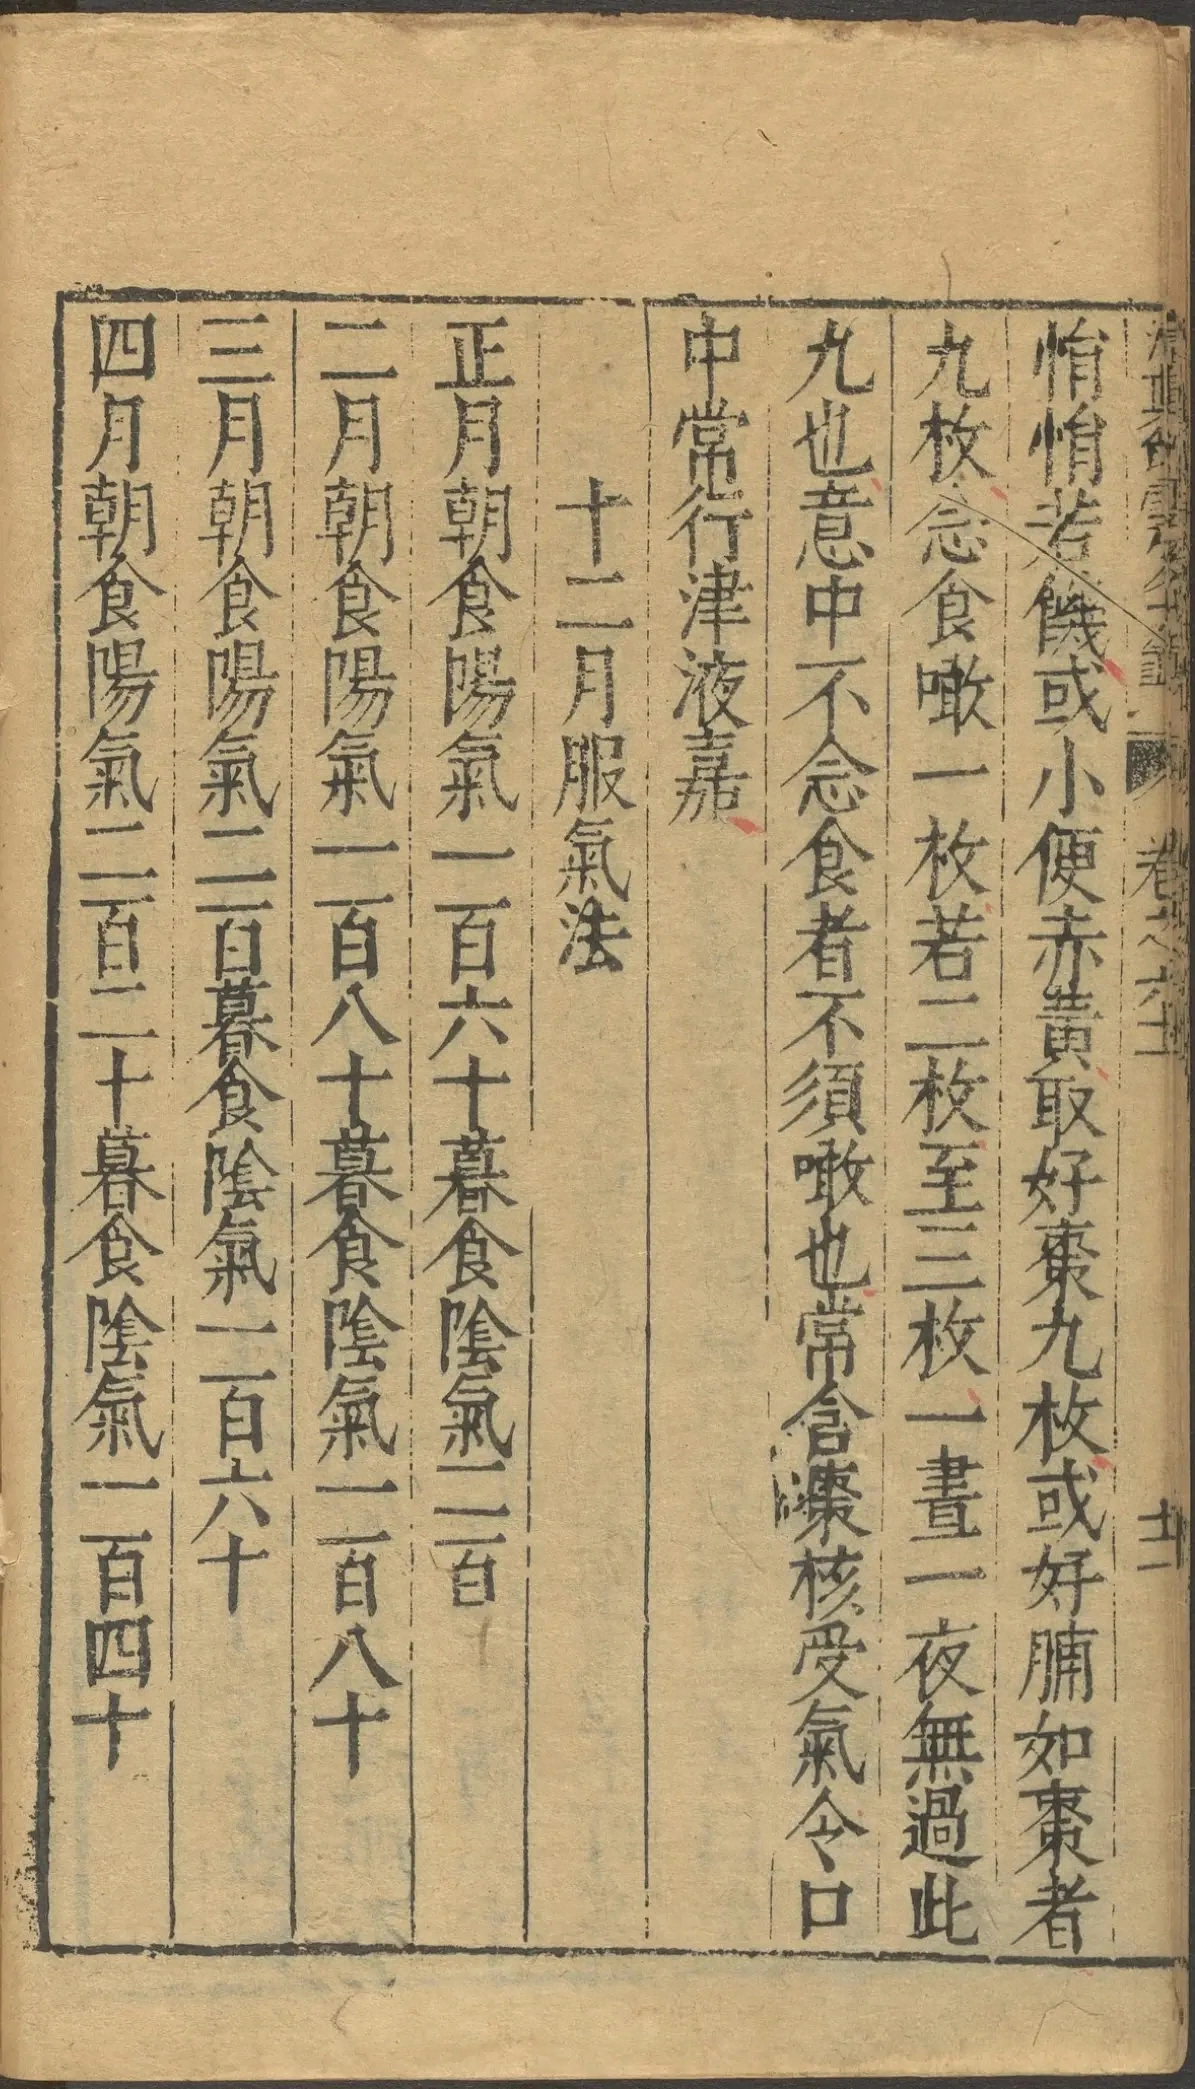 卷之六十一
十一
悁悁若饑或小便赤黃取好棗九枚或好腩如棗者
九枚念食噉一枚若二枚至三枚一晝一夜無過此
九也意中不念食者不須噉也常含棗核受氣令口
中常行津液嘉
十二月服氣法
正月朝食陽氣一百六十暮食陰氣二百
二月朝食陽氣一百八十暮食陰氣一百八十
三月朝食陽氣二百暮食陰氣一百六十
四月朝食陽氣二百二十暮食陰氣一百四十